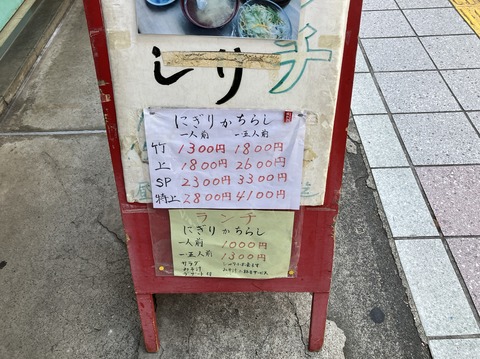 ンチ
にぎりかちらし
一人前 一.五人前
竹 1300円 1800円
上 1800円 2600円
SP 2300円 3300円
特上 2800円 4100円
ランチ
にぎりかちらし
一人前 1000円
一.五人前 1300円
サラダ
デザート付